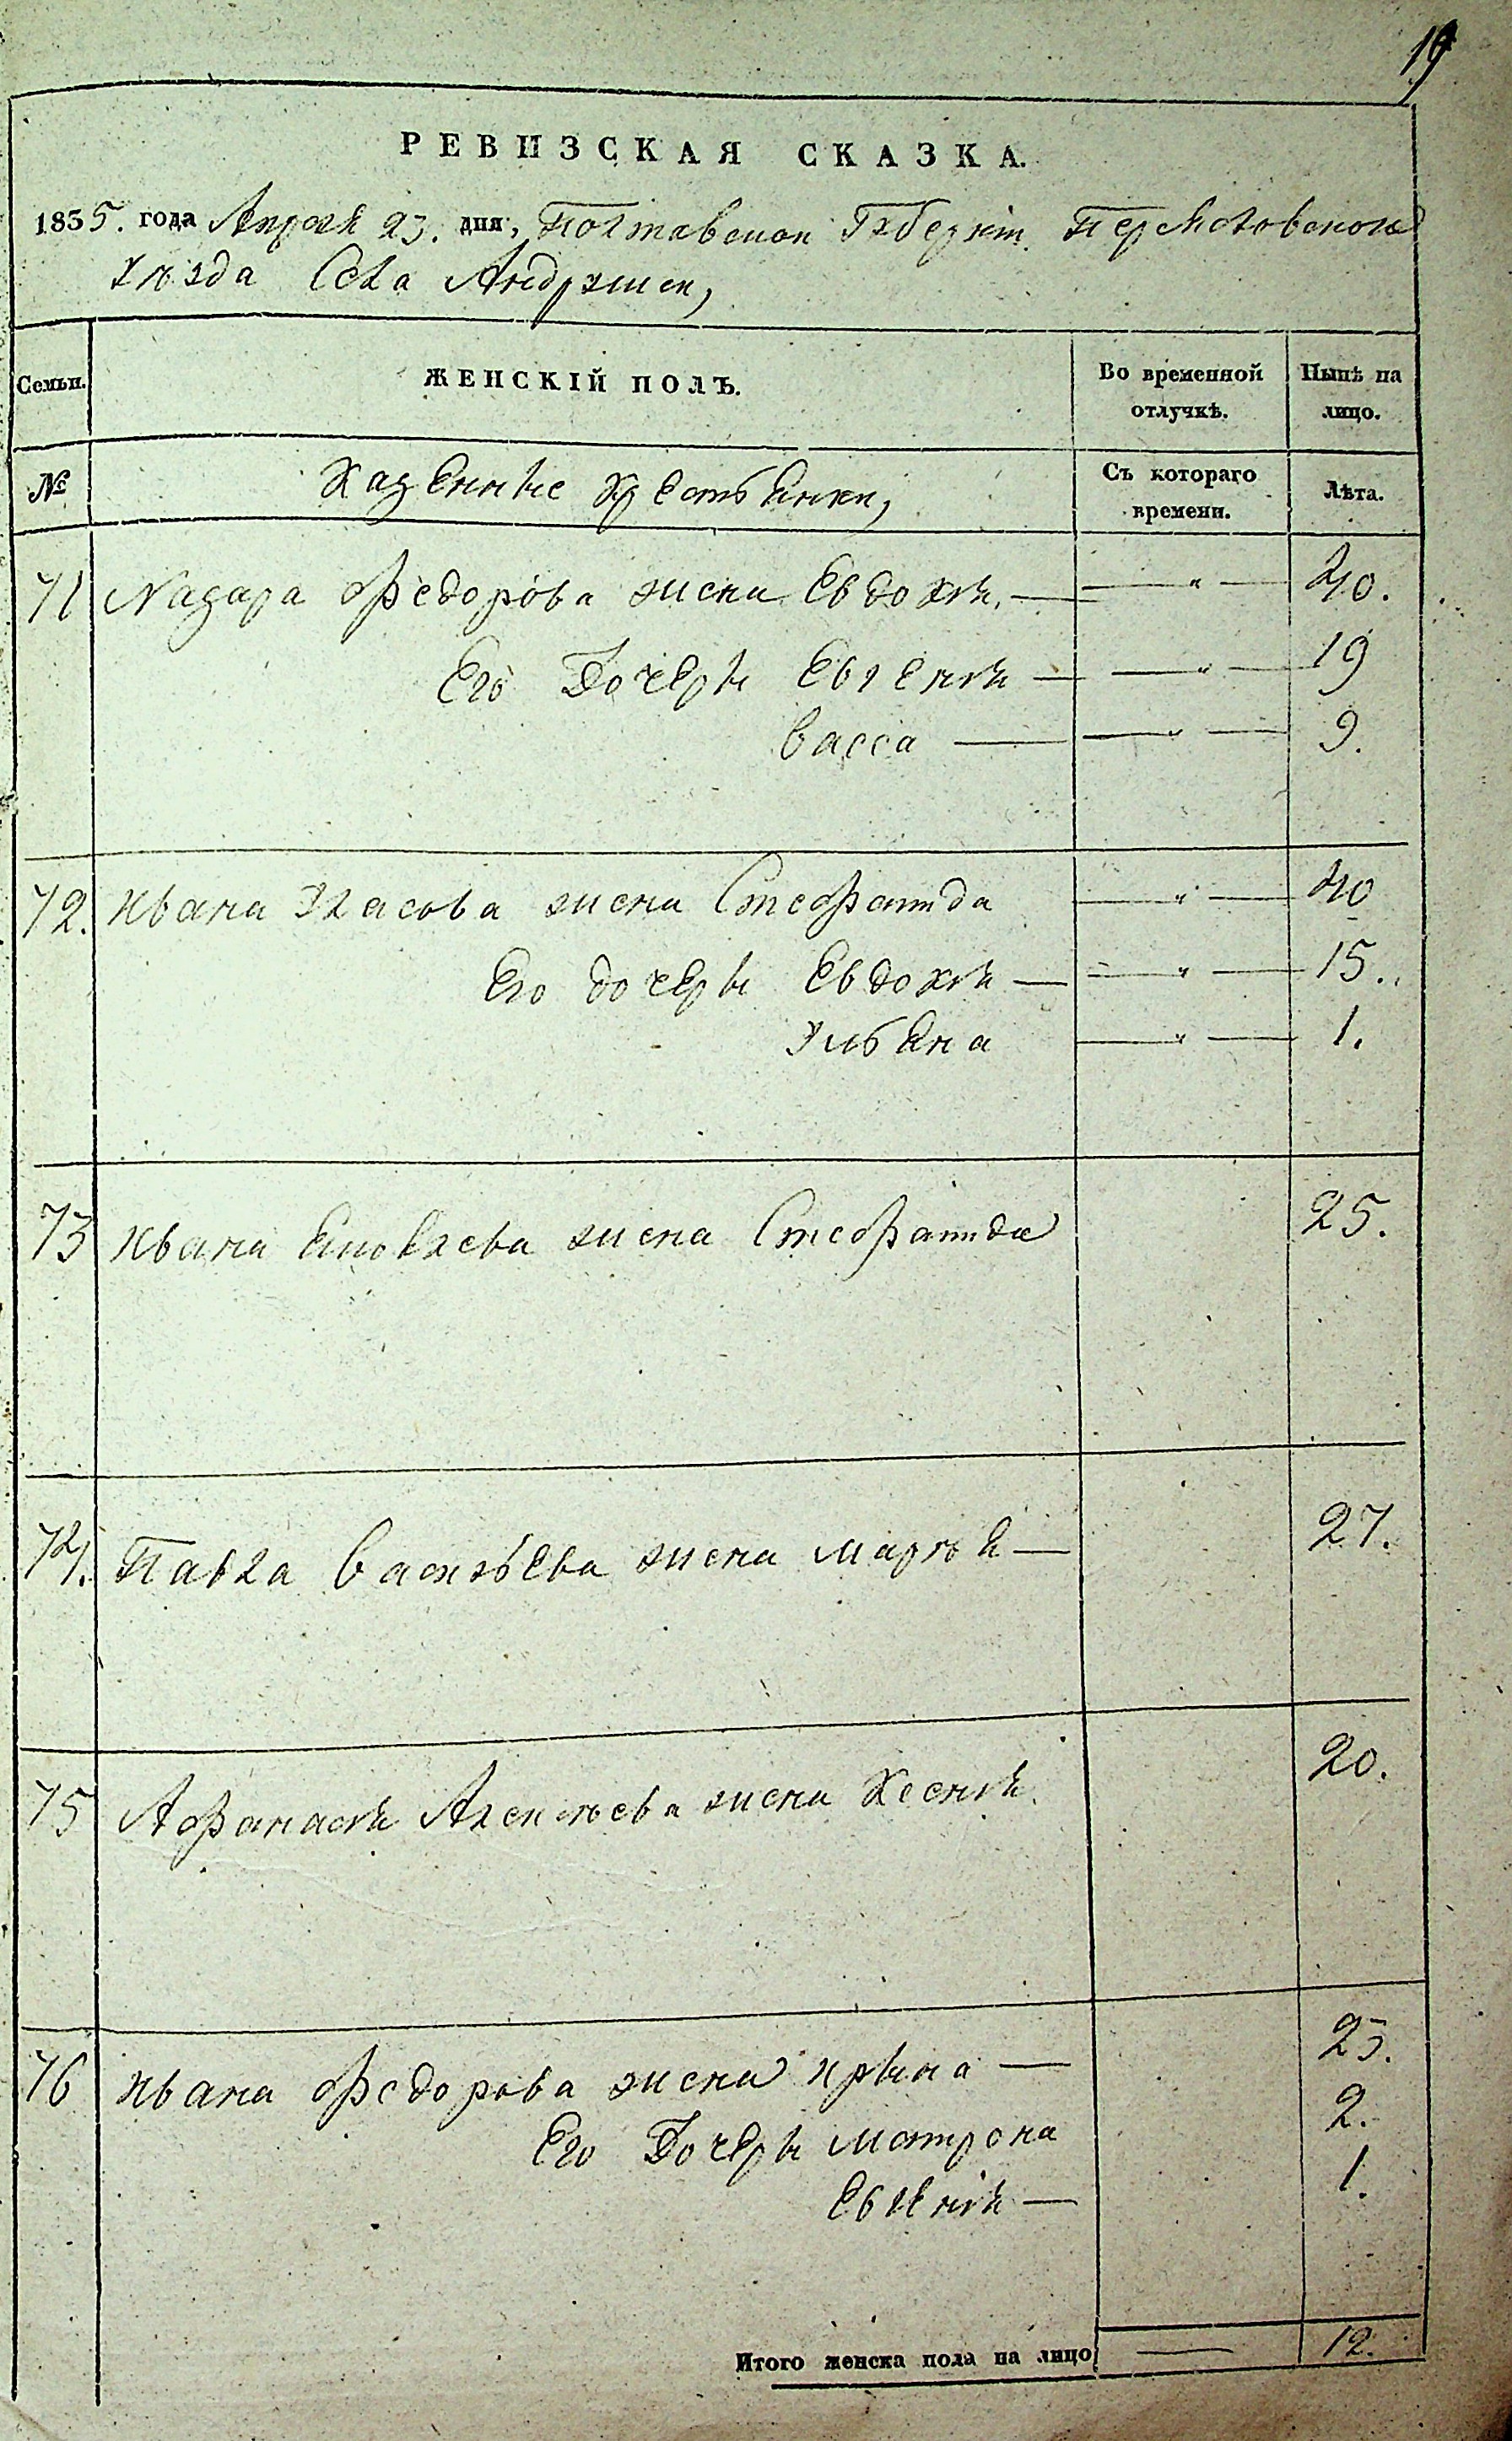 19
РЕВИЗСКАЯ СКАЗКА.
1835. года Апреля 23. дня, Полтавской Губернiи Переяславского
Уезда Села Андрушек,
Семьи. ЖЕНСКIЙ ПОЛЪ. Во временной отлучкѣ. Нынѣ на лицо.
№ Казенные крестьянки, Съ котораго времени. Лѣта.
71 Назара Федорова жена Евдокiя, — — " — 40.
Его Дочеры Евгенiя — — " — 19
Васса — — " — 9.
72. Ивана Власова жена Стефанида — " — 40
Его дочеры Евдокiя — — " — 15.
Ульяна — " — 1.
73 Ивана Яковлева жена Стефанида 25.
74. Павла Васильева жена Марья — 27.
75 Афанасiя Алексѣева жена Ксенiя. 20.
76 Ивана Федорова жена Ирына — 25.
Его Дочеры Матрона 2.
Евгенiя — 1.
Итого женска пола на лицо — 12.